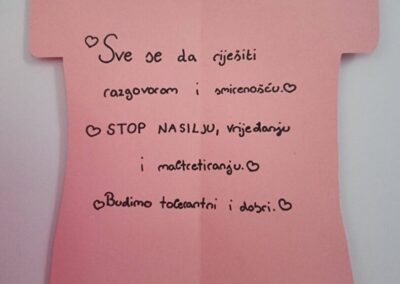 ♡Sve se da riješiti
razgovorom i smirenošću.♡
♡ STOP NASILJU, vrijeđanju
i maltretiranju.♡
♡Budimo tolerantni i dobri.♡